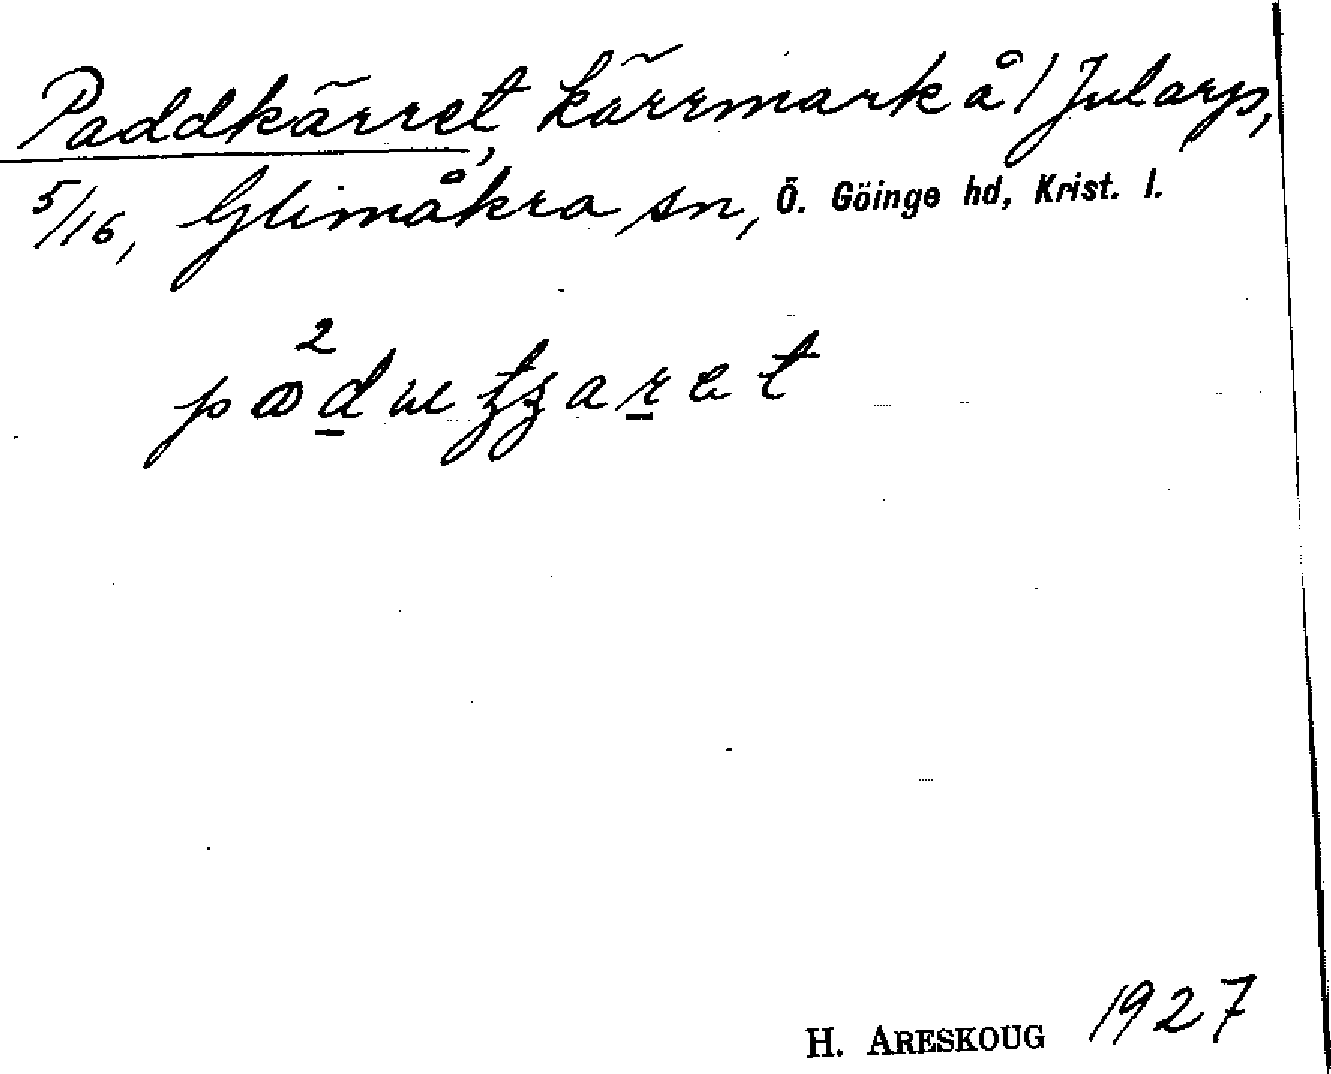 Paddkärret, kärrmark å / Jularp,
5/16, Glimåkra sn, Ö. Göinge hd, Krist. l.
H. ARESKOUG 1927